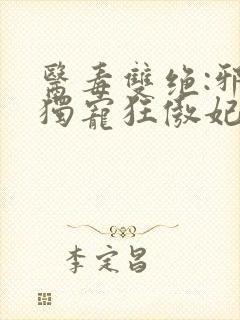 醫毒雙绝:邪
獨寵狂傲妃
李定昌